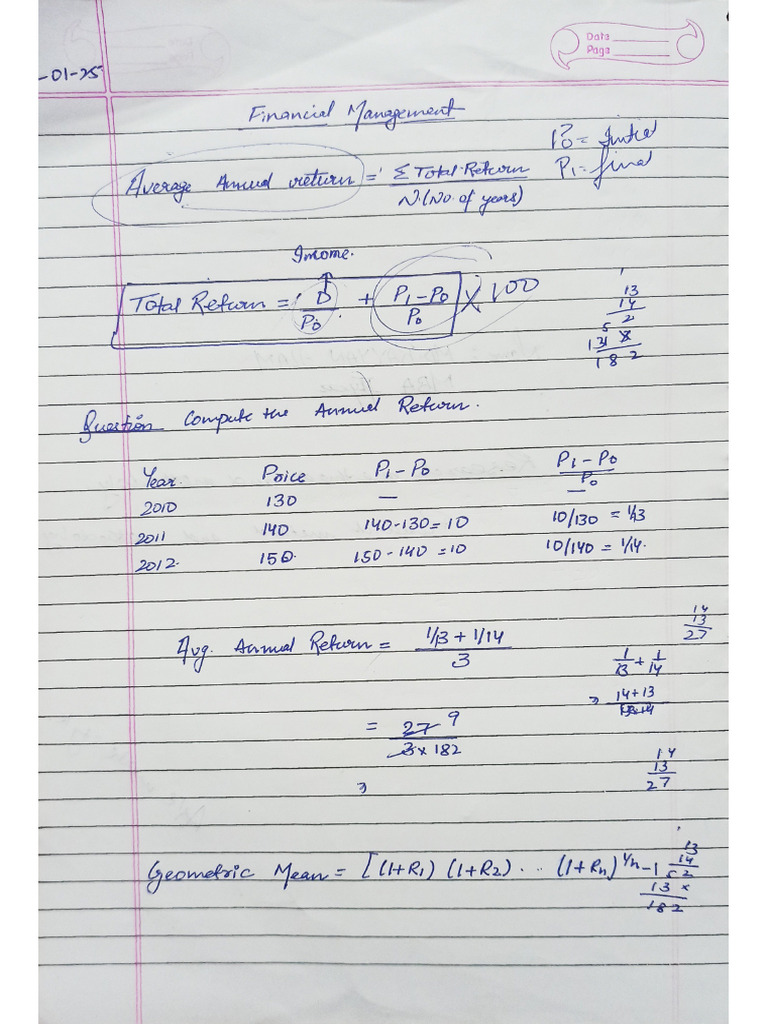 Data
Page
-01-25
Financial Management
Average Annual return = Σ Total Return / N (No of years)
P0 = Initial
P1 = final
Income.
Total Return = D/P0 + (P1 - P0)/P0 × 100
13
14
5 2
13 x
1 8 2
Question Compute the Annual Return.
Year Price P1 - P0 (P1 - P0)/P0
2010 130 — —
2011 140 140-130 = 10 10/130 = 1/13
2012. 150 150 - 140 = 10 10/140 = 1/14.
14
13
27
Avg. Annual Return = (1/13 + 1/14)/3
1/13 + 1/14
14+13
13·14
= 27 9 / 3 × 182
14
13
27
Geometric Mean = [(1+R1) (1+R2) . . . (1+Rn)^1/n - 1
13
14
5 2
13 x
182